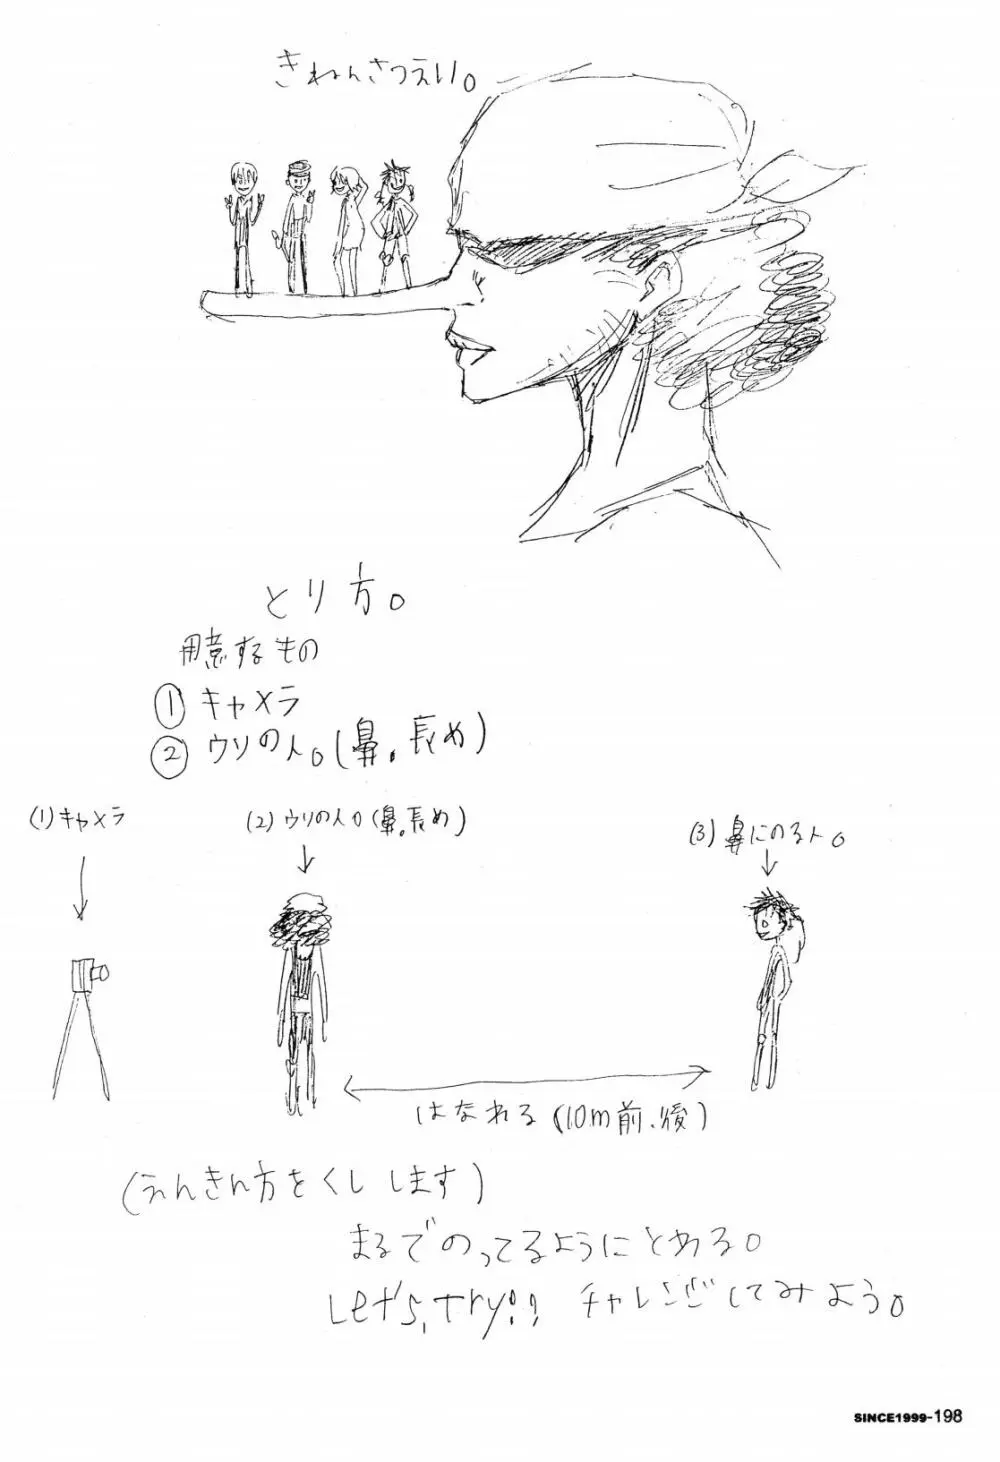 きねんさつえい。
とり方。
用意するもの
① キャメラ
② ウソの人。(鼻。長め)
(1)キャメラ
(2) ウソの人。(鼻。長め)
(3) 鼻にのる人。
はなれる(10m前、後)
(えんきん方をくしします)
まるでのってるようにとれる。
Let's, try!! チャレンジしてみよう。
SINCE1999-198